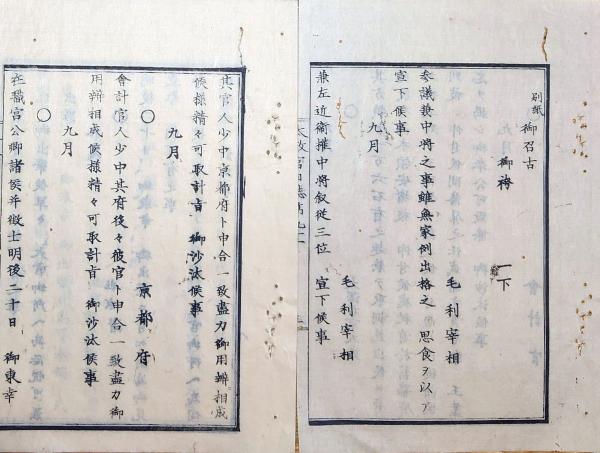 別紙
御召古
御袴 一下
毛利宰相
参議兼中将之事雖無家例出格之 思食ヲ以テ
宣下候事
九月
毛利宰相
兼左近衛権中将叙従三位 宣下候事
太政官日誌第九十二
其官人少中京都府ト申合一致盡力御用辨相成
候様精々可取計旨 御沙汰候事
九月
〇
京都府
會計官人少中其府後々彼官ト申合一致盡力御
用辨相成候様精々可取計旨 御沙汰候事
九月
〇
在職官公卿諸侯并徴士明後二十日 御東幸